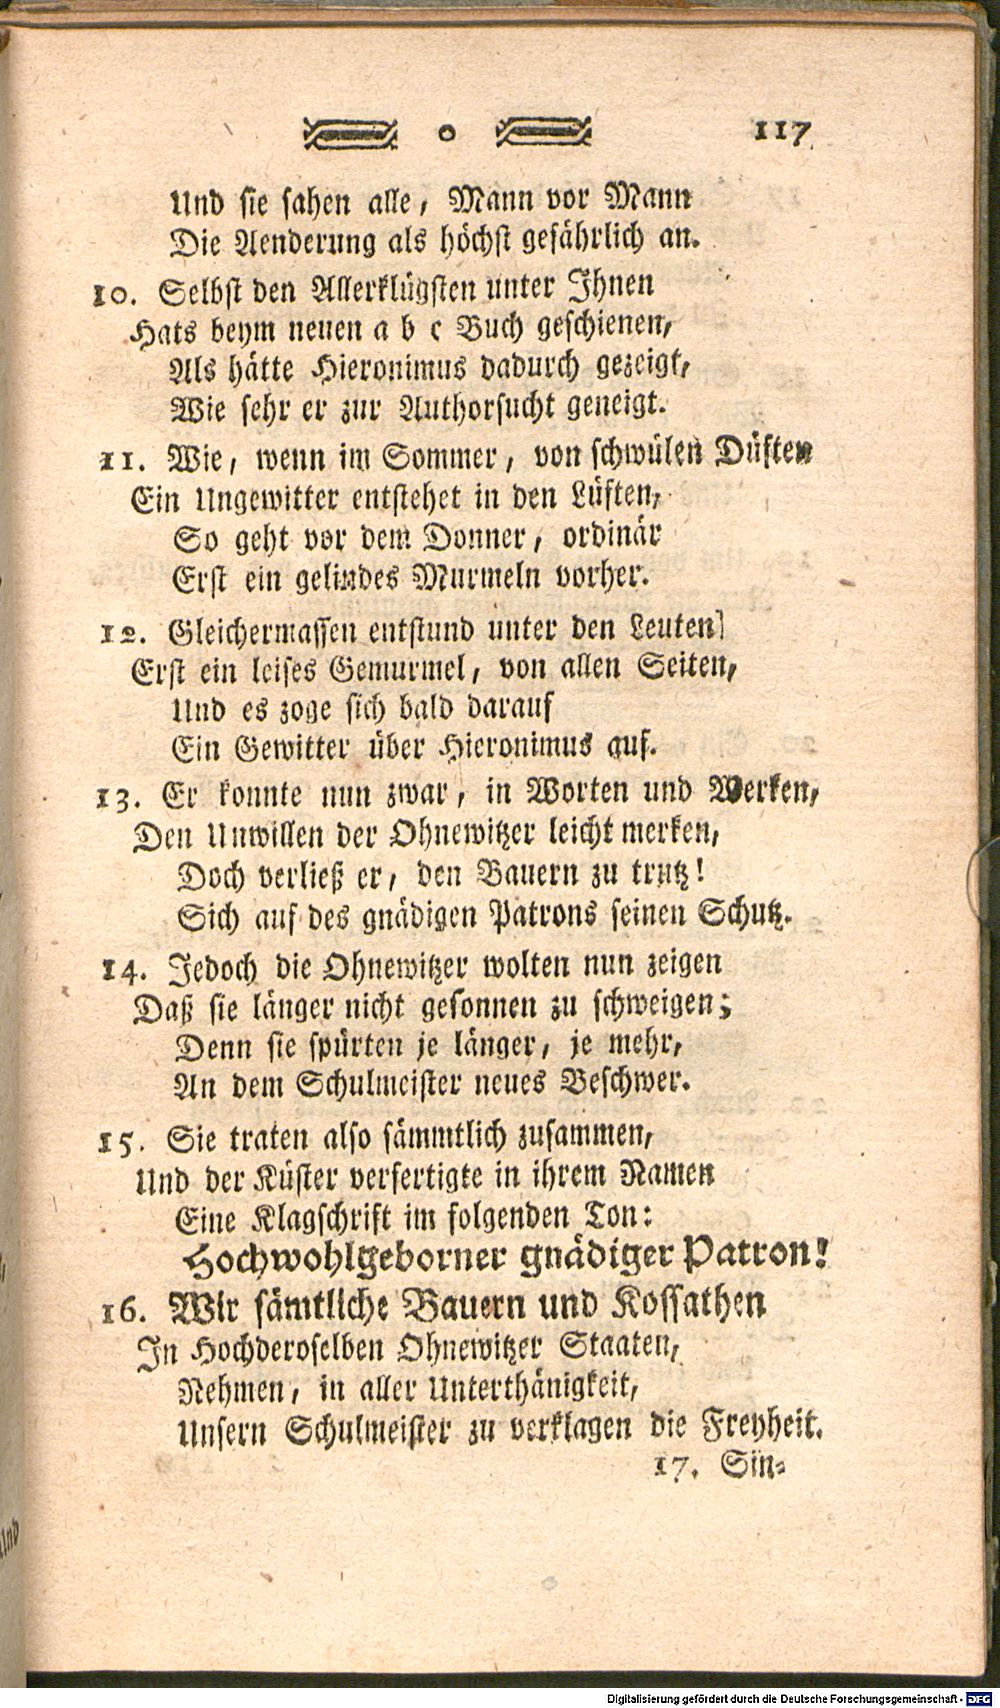 117
Und sie sahen alle, Mann vor Mann
Die Aenderung als höchst gefährlich an.
10. Selbst den Allerklügsten unter Ihnen
Hats beym neuen a b c Buch geschienen,
Als hätte Hieronimus dadurch gezeigt,
Wie sehr er zur Authorsucht geneigt.
11. Wie, wenn im Sommer, von schwülen Düften
Ein Ungewitter entstehet in den Lüften,
So geht vor dem Donner, ordinär
Erst ein gelindes Murmeln vorher.
12. Gleichermassen entstund unter den Leuten
Erst ein leises Gemurmel, von allen Seiten,
Und es zoge sich bald darauf
Ein Gewitter über Hieronimus auf.
13. Er konnte nun zwar, in Worten und Werken,
Den Unwillen der Ohnewitzer leicht merken,
Doch verließ er, den Bauern zu trutz!
Sich auf des gnädigen Patrons seinen Schutz.
14. Jedoch die Ohnewitzer wolten nun zeigen
Daß sie länger nicht gesonnen zu schweigen;
Denn sie spürten je länger, je mehr,
An dem Schulmeister neues Beschwer.
15. Sie traten also sämmtlich zusammen,
Und der Küster verfertigte in ihrem Namen
Eine Klagschrift im folgenden Ton:
Hochwohlgeborner gnädiger Patron!
16. Wir sämtliche Bauern und Kossathen
In Hochderoselben Ohnewitzer Staaten,
Nehmen, in aller Unterthänigkeit,
Unsern Schulmeister zu verklagen die Freyheit.
17. Sin-
Digitalisierung gefördert durch die Deutsche Forschungsgemeinschaft - DFG